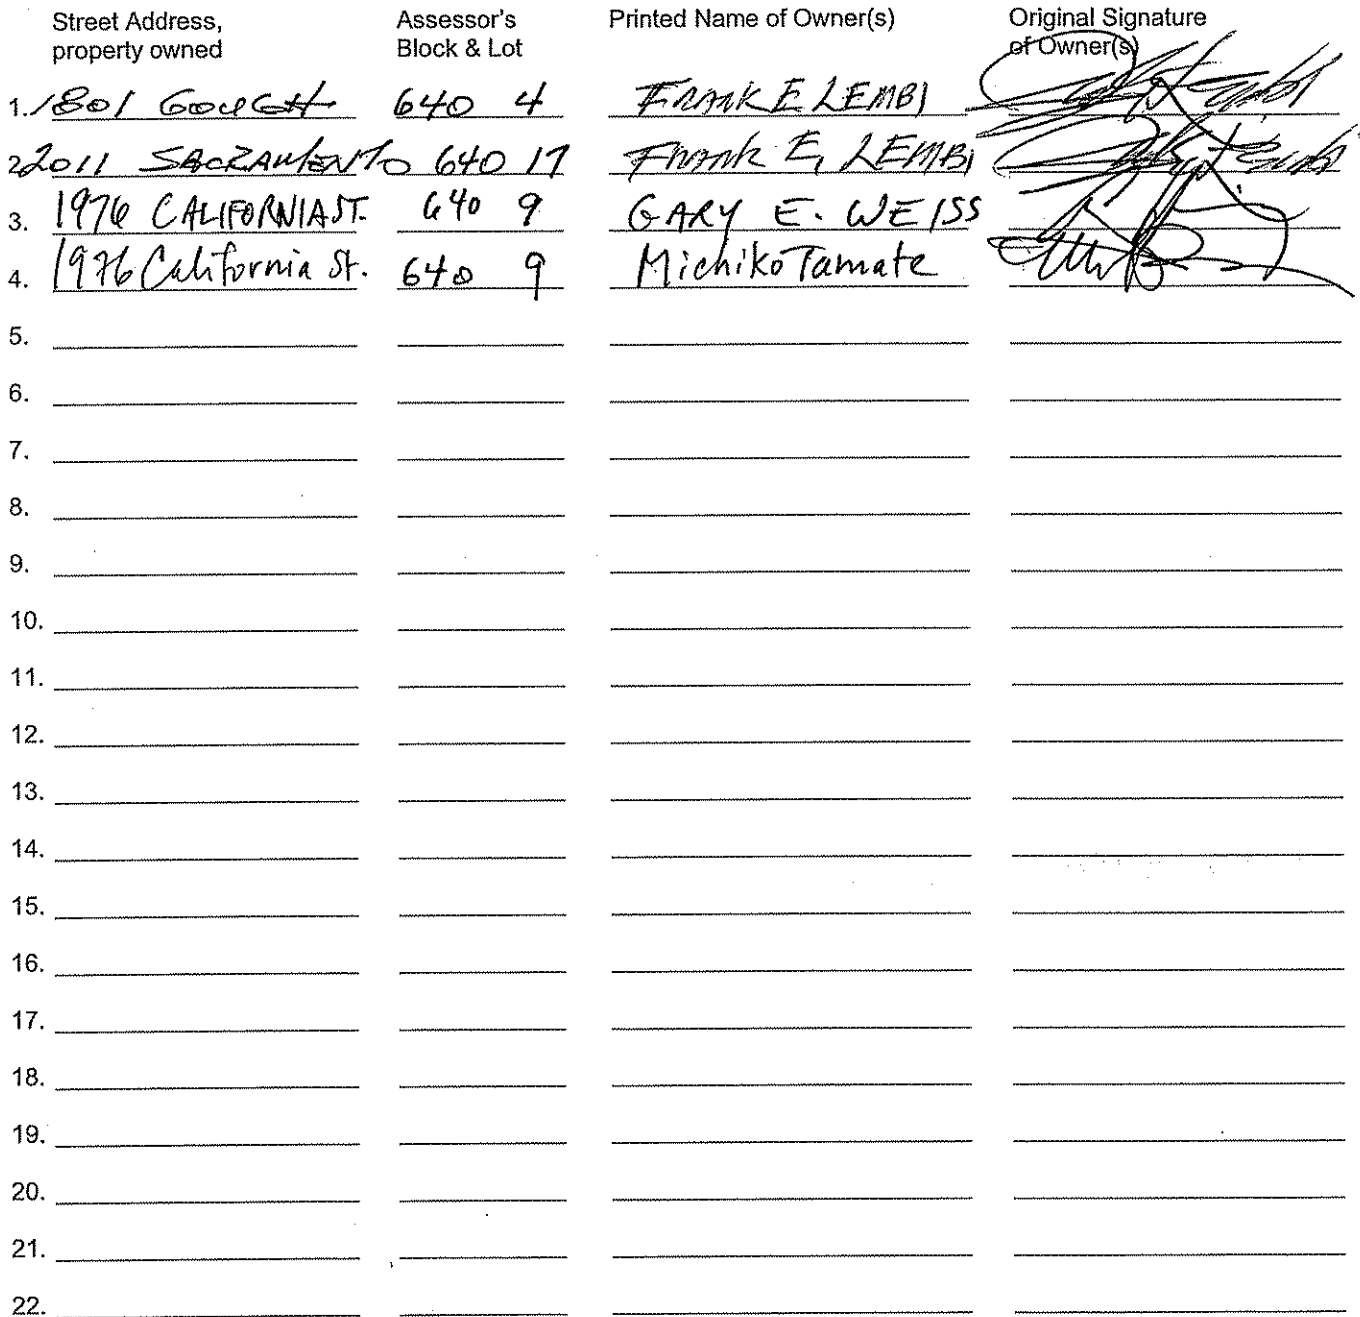 Street Address, Assessor's Printed Name of Owner(s) Original Signature
property owned Block & Lot of Owner(s)
1. 1801 GOUGH 640 4 FRANK E LEMBI
2. 2011 SACRAMENTO 640 17 FRANK E, LEMBI
3. 1976 CALIFORNIA ST. 640 9 GARY E. WEISS
4. 1976 California St. 640 9 Michiko Tamate
5.
6.
7.
8.
9.
10.
11.
12.
13.
14.
15.
16.
17.
18.
19.
20.
21.
22.